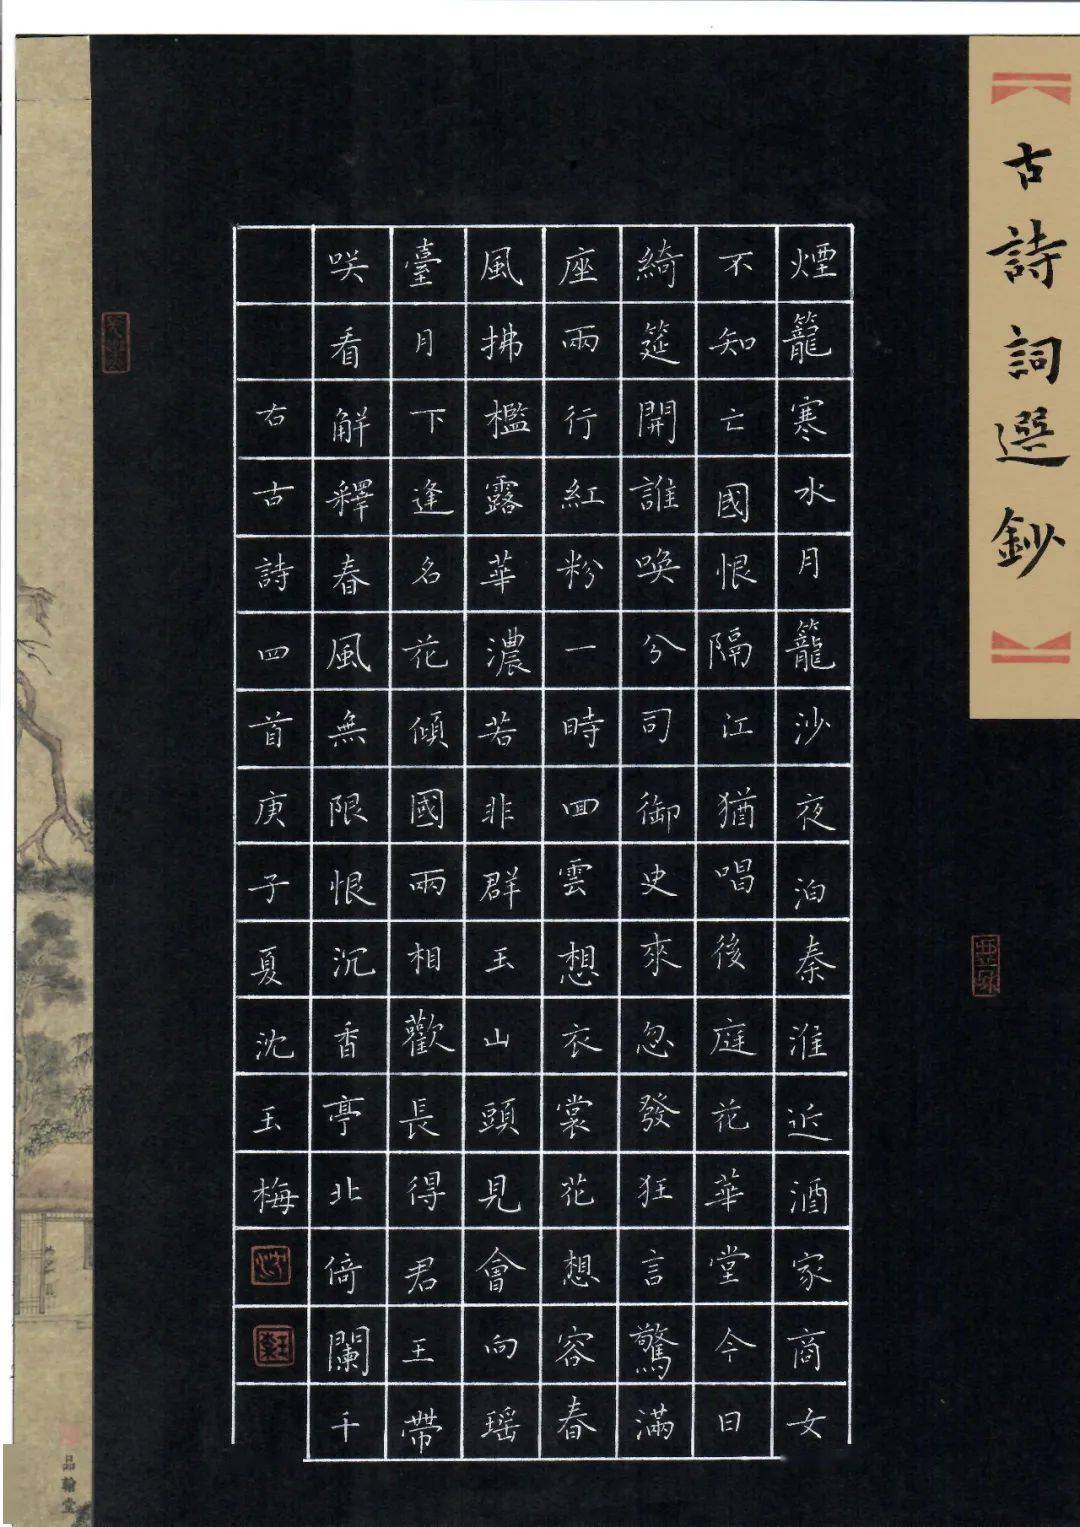 古詩詞選鈔
煙籠寒水月籠沙夜泊秦淮近酒家商女
不知亡國恨隔江猶唱後庭花華堂今日
綺筵開誰喚分司御史來忽發狂言驚滿
座兩行紅粉一時囬雲想衣裳花想容春
風拂檻露華濃若非群玉山頭見會向瑶
臺月下逢名花傾國兩相歡長得君王帶
咲看解釋春風無限恨沉香亭北倚闌干
右古詩四首庚子夏沈玉梅
品翰堂